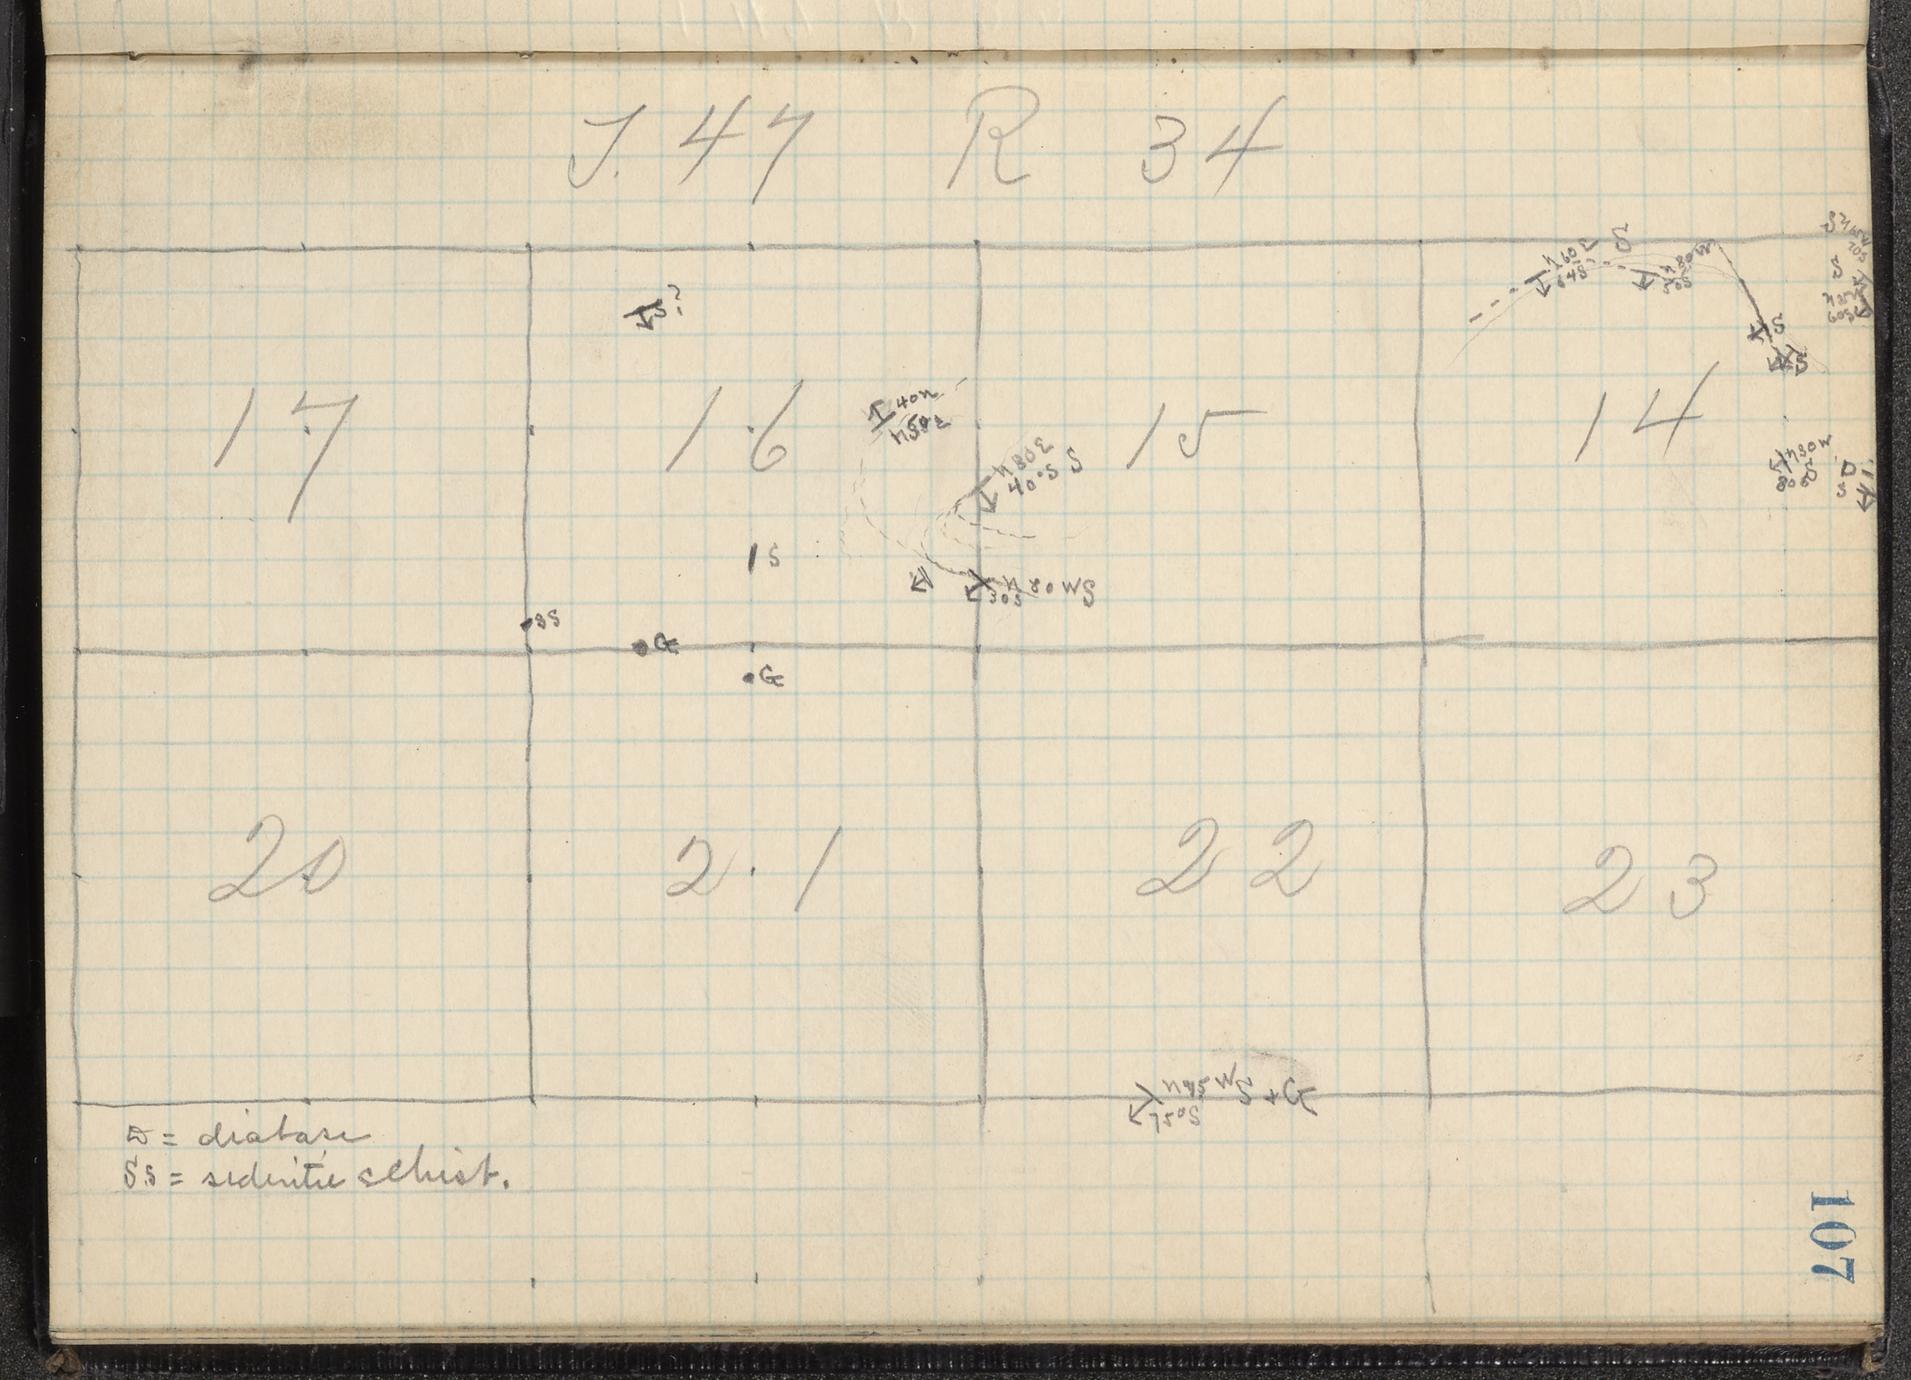 T. 47 R 34
S?
17 16 15 14
N 60 E S N 80 W
64 S 50 S
S
S
40 N
N 50 E
N 80 E
40° S S
N 80 W
80 S
D
S
S
N 80 W S
30 S
SS
G
G
20 21 22 23
N 75 W S + G
75° S
D = diabase
SS = sideritic schist.
107